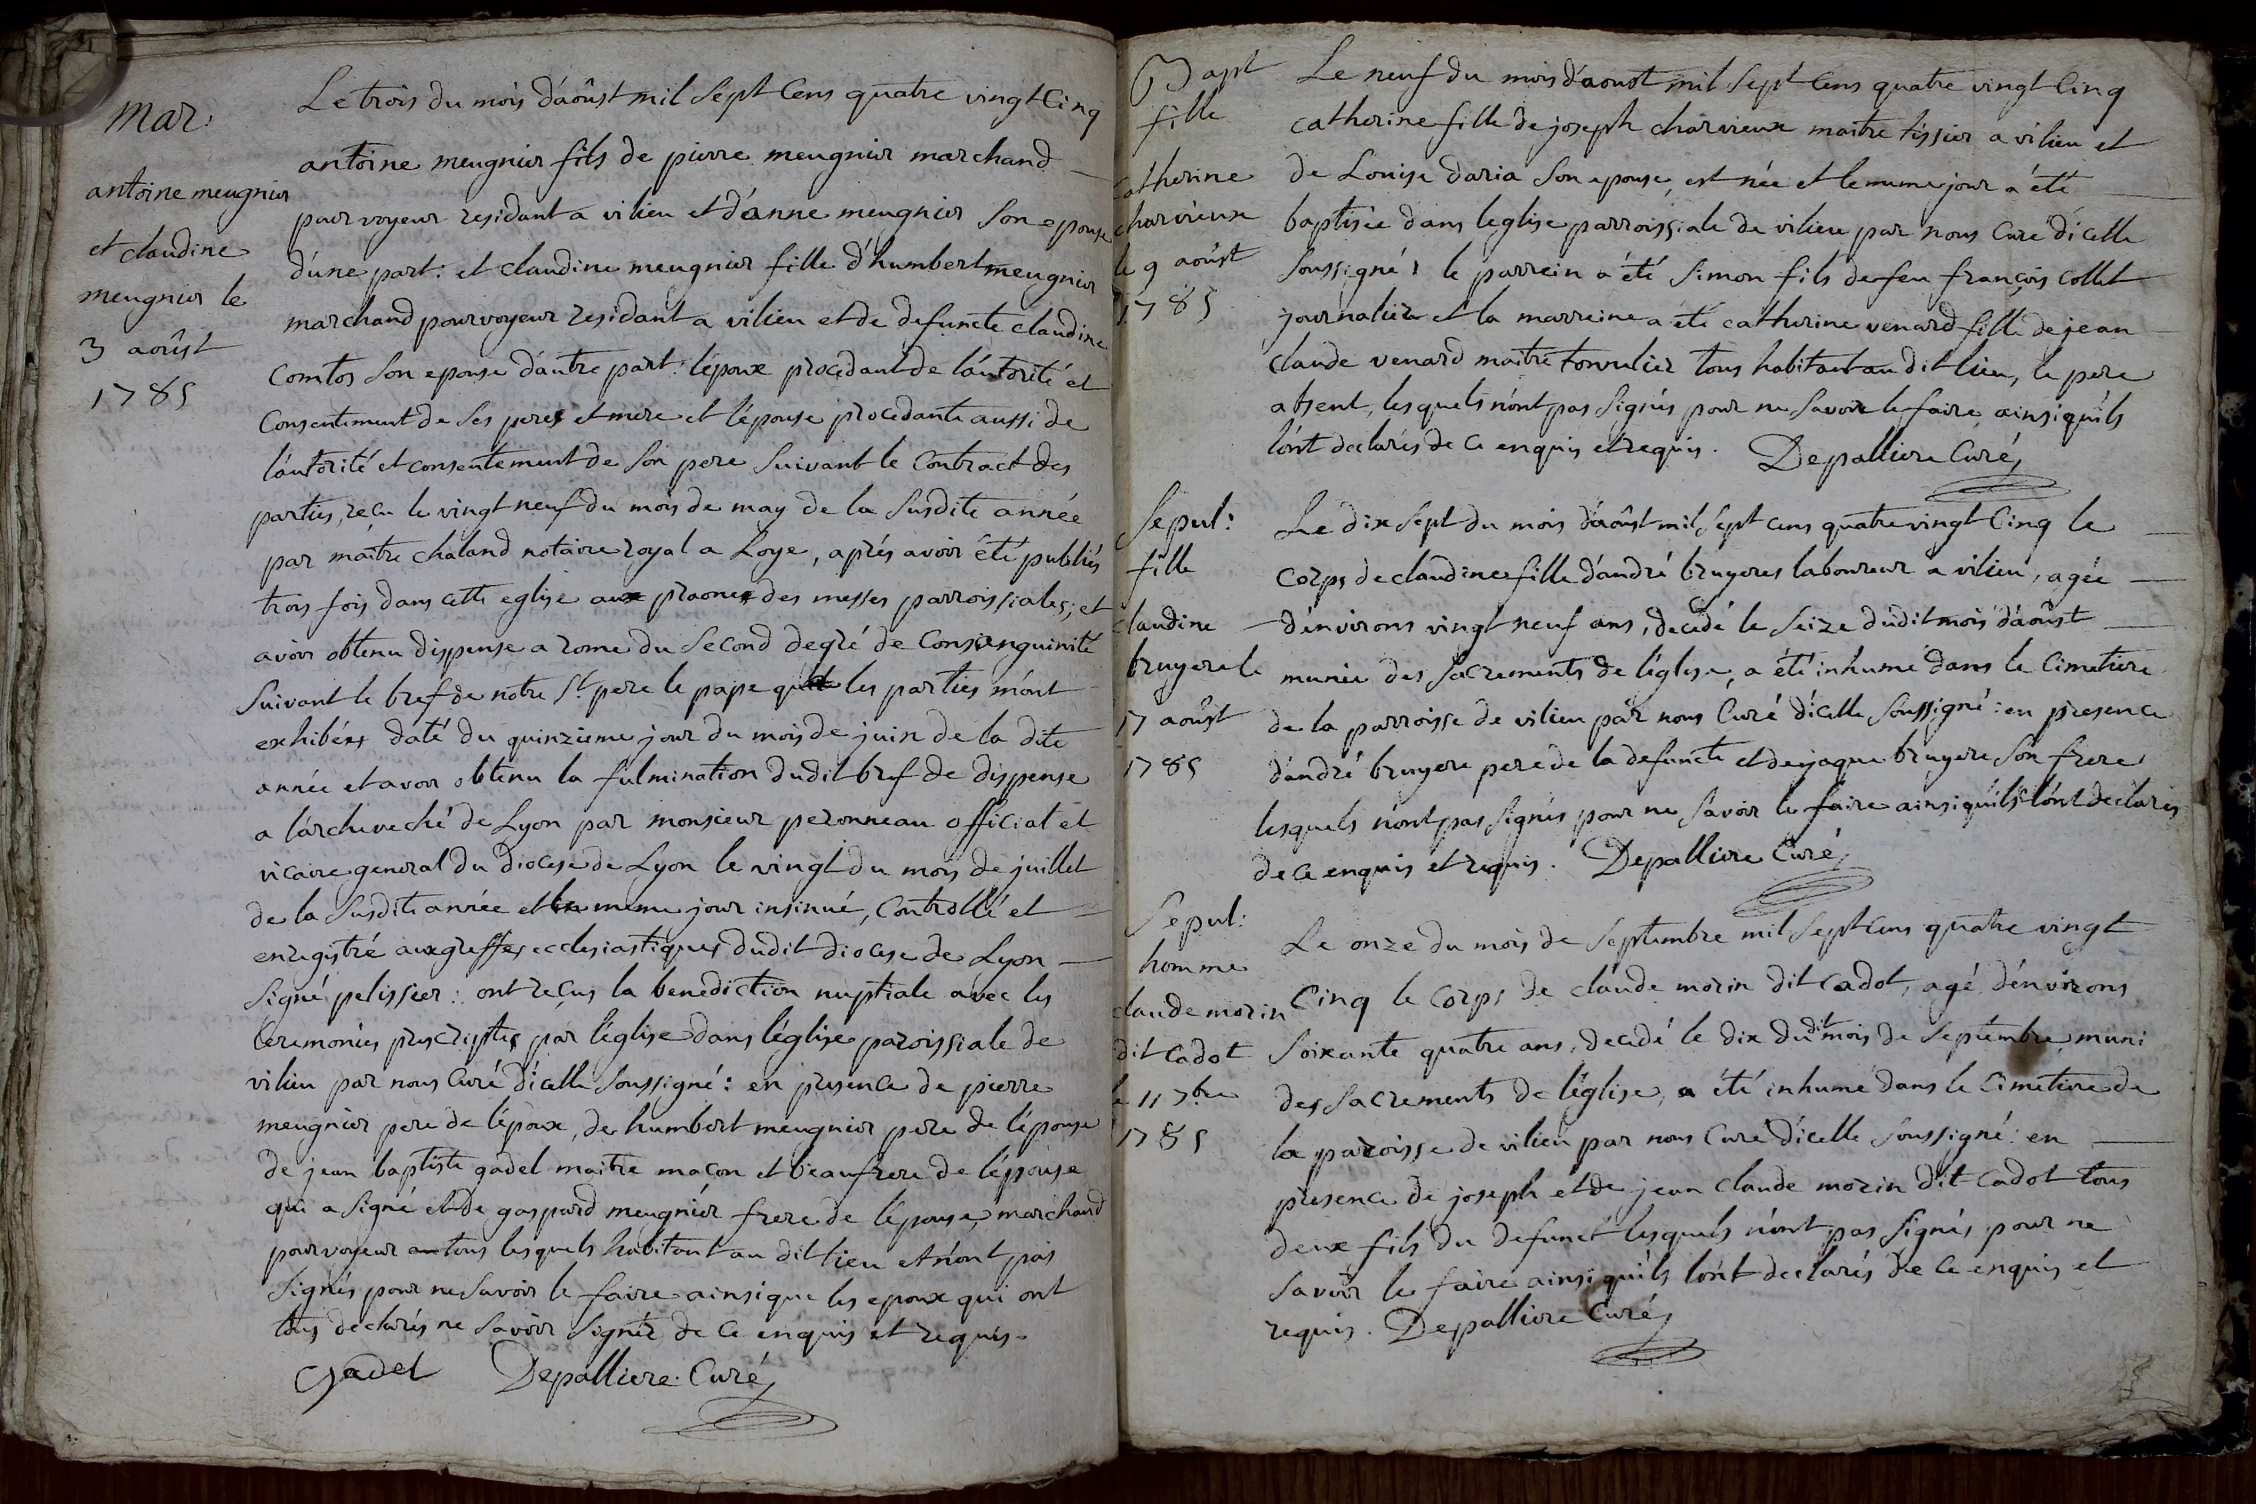 mar:
antoine meugnier
et claudine
meugnier le
3 août
1785
Le trois du mois d'août mil sept cens quatre vingt cinq
antoine meugnier fils de pierre meugnier marchand
pourvoyeur residant a vilieu et d'anne meugnier son epouse
d'une part: et claudine meugnier fille d'humbert meugnier
marchand pourvoyeur residant a vilieu et de defuncte claudine
comtos son epouse d'autre part: l'époux procedant de l'autorité et
consentement de ses peres et mere et l'épouse procedante aussi de
l'autorité et consentement de son pere suivant le contract des
parties, reçu le vingt neuf du mois de may de la susdite année
par maitre chaland notaire royal a Loye, aprés avoir été publiés
trois fois dans cette eglise aux praones des messes parroissiales; et
avoir obtenu dispense a rome du second degré de consanguinité
suivant le bref de notre St. pere le pape que les parties m'ont
exhibées daté du quinzieme jour du mois de juin de la dite
année et avoir obtenu la fulmination dudit bref de dispense
a l'archeveché de Lyon par monsieur peronneau official et
vicaire general du diocese de Lyon le vingt du mois de juillet
de la susdite année et le meme jour insinué, controllé et
enregistré aux greffes ecclesiastiques dudit diocese de Lyon
signé pelissier: ont reçus la benediction nuptiale avec les
ceremonies prescriptes par l'église dans l'église paroissiale de
vilieu par nous curé d'icelle soussigné: en presence de pierre
meugnier pere de l'époux, de humbert meugnier pere de l'épouse
de jean baptiste gadel maitre maçon et beaufrere de l'épouse
qui a signé et de gaspard meugniér frere de l'épouse, marchand
pourvoyeur tous lesquels habitant au dit lieu et n'ont pas
signés pour ne savoir le faire ainsi que les epoux qui ont
tous declarés ne savoir signér de ce enquis et requis.
Gadel Depalliere Curé
Bapt
fille
Catherine
charvieux
le 9 août
1785
Le neuf du mois d'aoust mil sept cens quatre vingt cinq
catherine fille de joseph charvieux maitre tissier a vilieu et
de Louise daria son epouse, est née et le meme jour a été
baptisée dans l'eglise parroissiale de vilieu par nous curé d'icelle
soussigné: le parrein a été simon fils de feu françois collet
journalier et la marreine a été catherine venard fille de jean
claude venard maitre tonnelier tous habitant au dit lieu, le pere
absent, lesquels n'ont pas signés pour ne savoir le faire, ainsi qu'ils
l'ont declarés de ce enquis et requis. Depalliere Curé
Sepul:
fille
claudine
bruyere le
17 août
1785
Le dix sept du mois d'août mil sept cens quatre vingt cinq le
corps de claudine fille d'andré bruyeres laboureur a vilieu, agée
d'environs vingt neuf ans, decedé le seize dudit mois d'août
munie des sacrements de l'église, a été inhumé dans le cimetiere
de la parroisse de vilieu par nous curé d'icelle soussigné: en presence
d'andré bruyere pere de la defuncte et de jaque bruyere son frere
lesquels n'ont pas signés pour ne savoir le faire ainsi qu'ils l'ont declarés
de ce enquis et requis. Depalliere Curé
Sepul:
homme
claude morin
dit cadot
le 11 7bre
1785
Le onze du mois de septembre mil sept cens quatre vingt
cinq le corps de claude morin dit cadot, agé d'environs
soixante quatre ans, decedé le dix dudit mois de septembre, muni
des sacrements de l'église, a été inhumé dans le cimetiere de
la paroisse de vilieu par nous curé d'icelle soussigné: en
presence de joseph et de jean claude morin dit cadot tous
deux fils du defunct lesquels n'ont pas signés pour ne
savoir le faire ainsi qu'ils l'ont declarés de ce enquis et
requis. Depalliere Curé